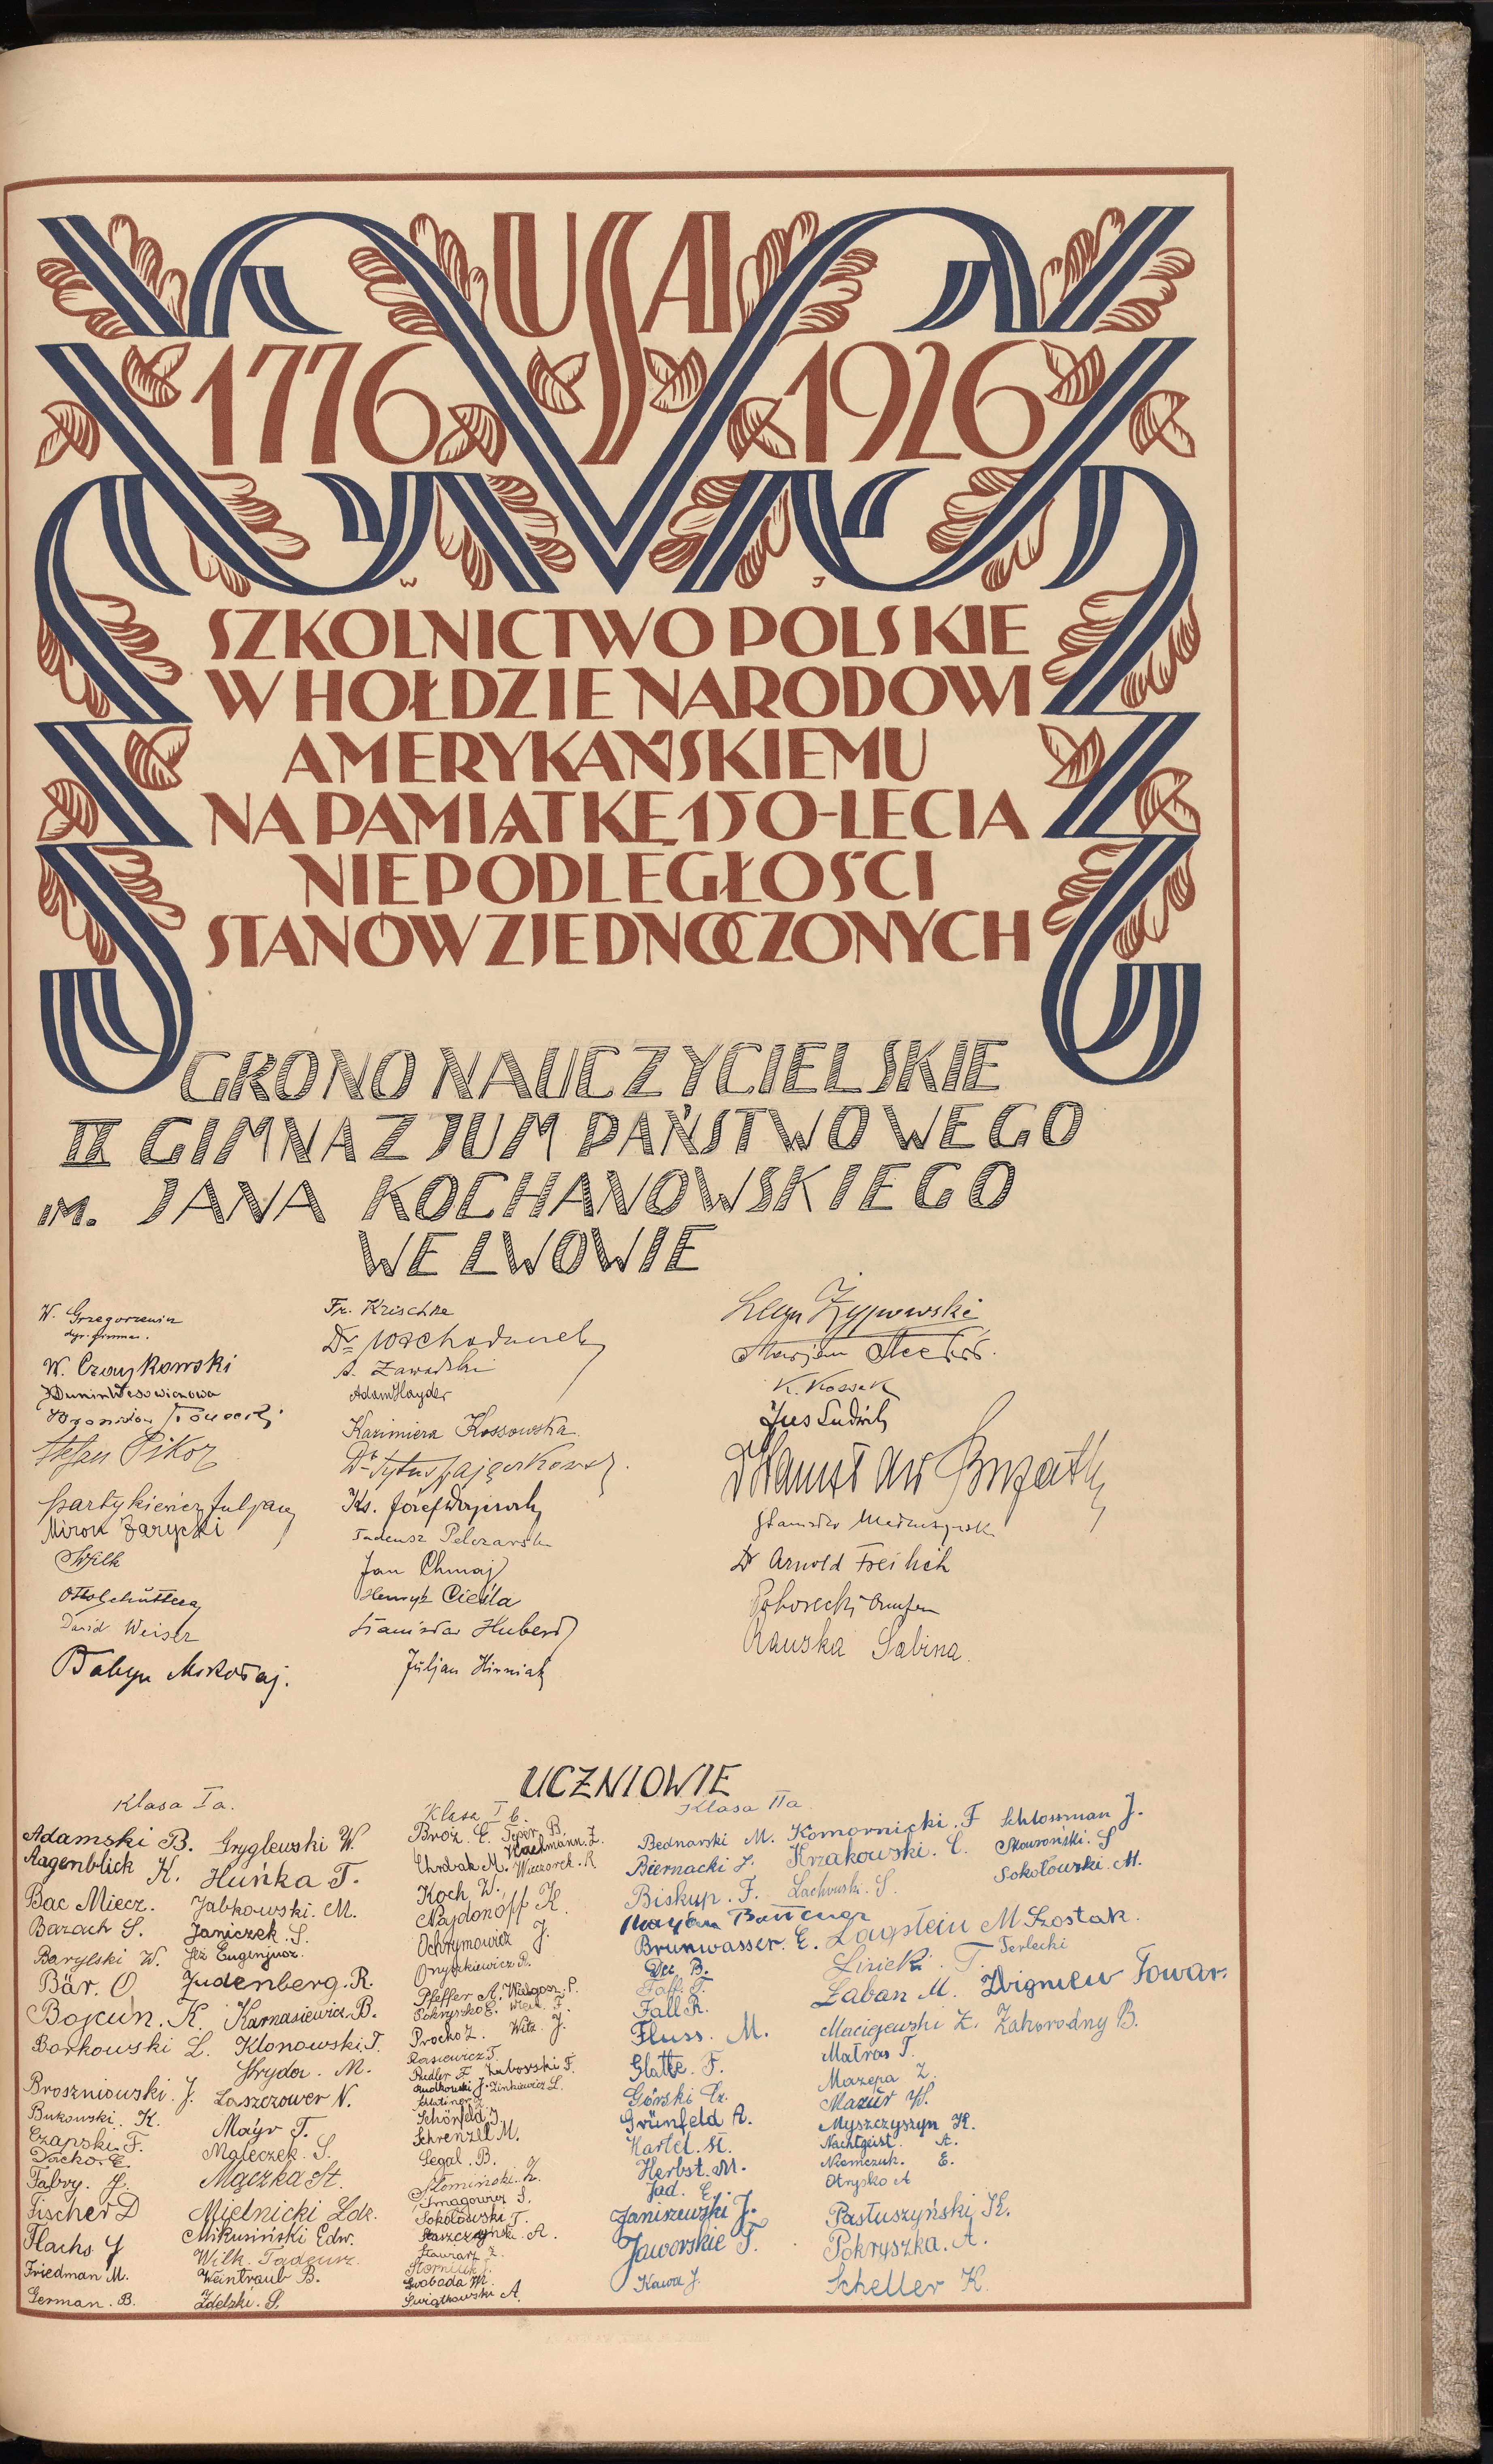 USA
1776 1926
W J
SZKOLNICTWO POLSKIE
W HOŁDZIE NARODOWI
AMERYKAŃSKIEMU
NA PAMIĄTKĘ 150-LECIA
NIEPODLEGŁOŚCI
STANÓW ZJEDNOCZONYCH
GRONO NAUCZYCIELSKIE
IX GIMNAZJUM PAŃSTWOWEGO
IM. JANA KOCHANOWSKIEGO
WE LWOWIE
W. Grzegorzewicz
W. Czajkowski
Stefan Pikor
Miron Zarycki
Wilk
Dawid Weiser
Babyn Mikołaj.
Fr. Krischke
A. Zawadzki
Adam Hayder
Kazimiera Kossowska.
Ks. Józef
Tadeusz Pelczarski
Jan Chmaj
Henryk Cieśla
Stanisław Hubert
Juljan Hirniak
Marjan
K. Kossak
Jus Ludwik
Dr Arnold Freilich
Rauska Sabina.
UCZNIOWIE
Klasa Ia.
Adamski B.
Aagenblick K.
Bac Miecz.
Barach S.
Barylski W.
Bär. O
Bojcun. K.
Borkowski L.
Broszniowski. J.
Bukowski. K.
Czapski. F.
Dacko. E.
Fabry. J.
Fischer D
Flachs J
Friedman M.
German. B.
Gryglewski W.
Huńka T.
Jabkowski. M.
Janiczek. S.
Jeż Eugenjusz.
Judenberg. R.
Karnasiewicz. B.
Klonowski. T.
Kryda. M.
Laszczower N.
Mayr T.
Maleczek. S.
Mączka St.
Mielnicki Zdz.
Mikusiński Edw.
Wilk. Tadeusz.
Weintraub B.
Zdelski. S.
Klasa I b.
Broż. E. Tyser. B.
Chrobak M. Wachmann. Z.
Koch W. Wieczorek. R
Najdonoff K.
Ochrymowicz J.
Onyszkiewicz R.
Pfeffer A. Walgosz. P.
Pokryszko E.
Procko Z. Witz. J.
Rasiewicz T.
Rudler F. Zaborski F.
Rudkowski J. Zinkiewicz L.
Schönfeld J.
Schrenzel M.
Segal. B.
Słomiński. Z.
Smagowicz S.
Sokołowski T.
Stawiarz Z.
Swoboda W.
Świątkowski A.
Klasa IIa
Bednarski M.
Biernacki J.
Biskup. F.
Brunwasser. E.
Dec B.
Faff. T.
Fall R.
Fluss. M.
Glatte. F.
Górski Cz.
Grünfeld A.
Hartel. St.
Herbst. M.
Jad. E.
Janiszewski J.
Jaworskie T.
Kawa J.
Komornicki. F
Krzakowski. C.
Lachowski. S.
Laufstein M
Lisiecki. T.
Łaban M.
Maciejewski Z.
Matras T.
Mazepa Z.
Mazur W.
Myszczyszyn K.
Nachtgeist. A.
Niemczuk. E.
Otrysko A
Pastuszyński K.
Pokryszka. A.
Scheller K.
Schlossman J.
Skowroński. S
Sokołowski. M.
Szostak.
Terlecki
Zbigniew Towar.
Zahorodny B.